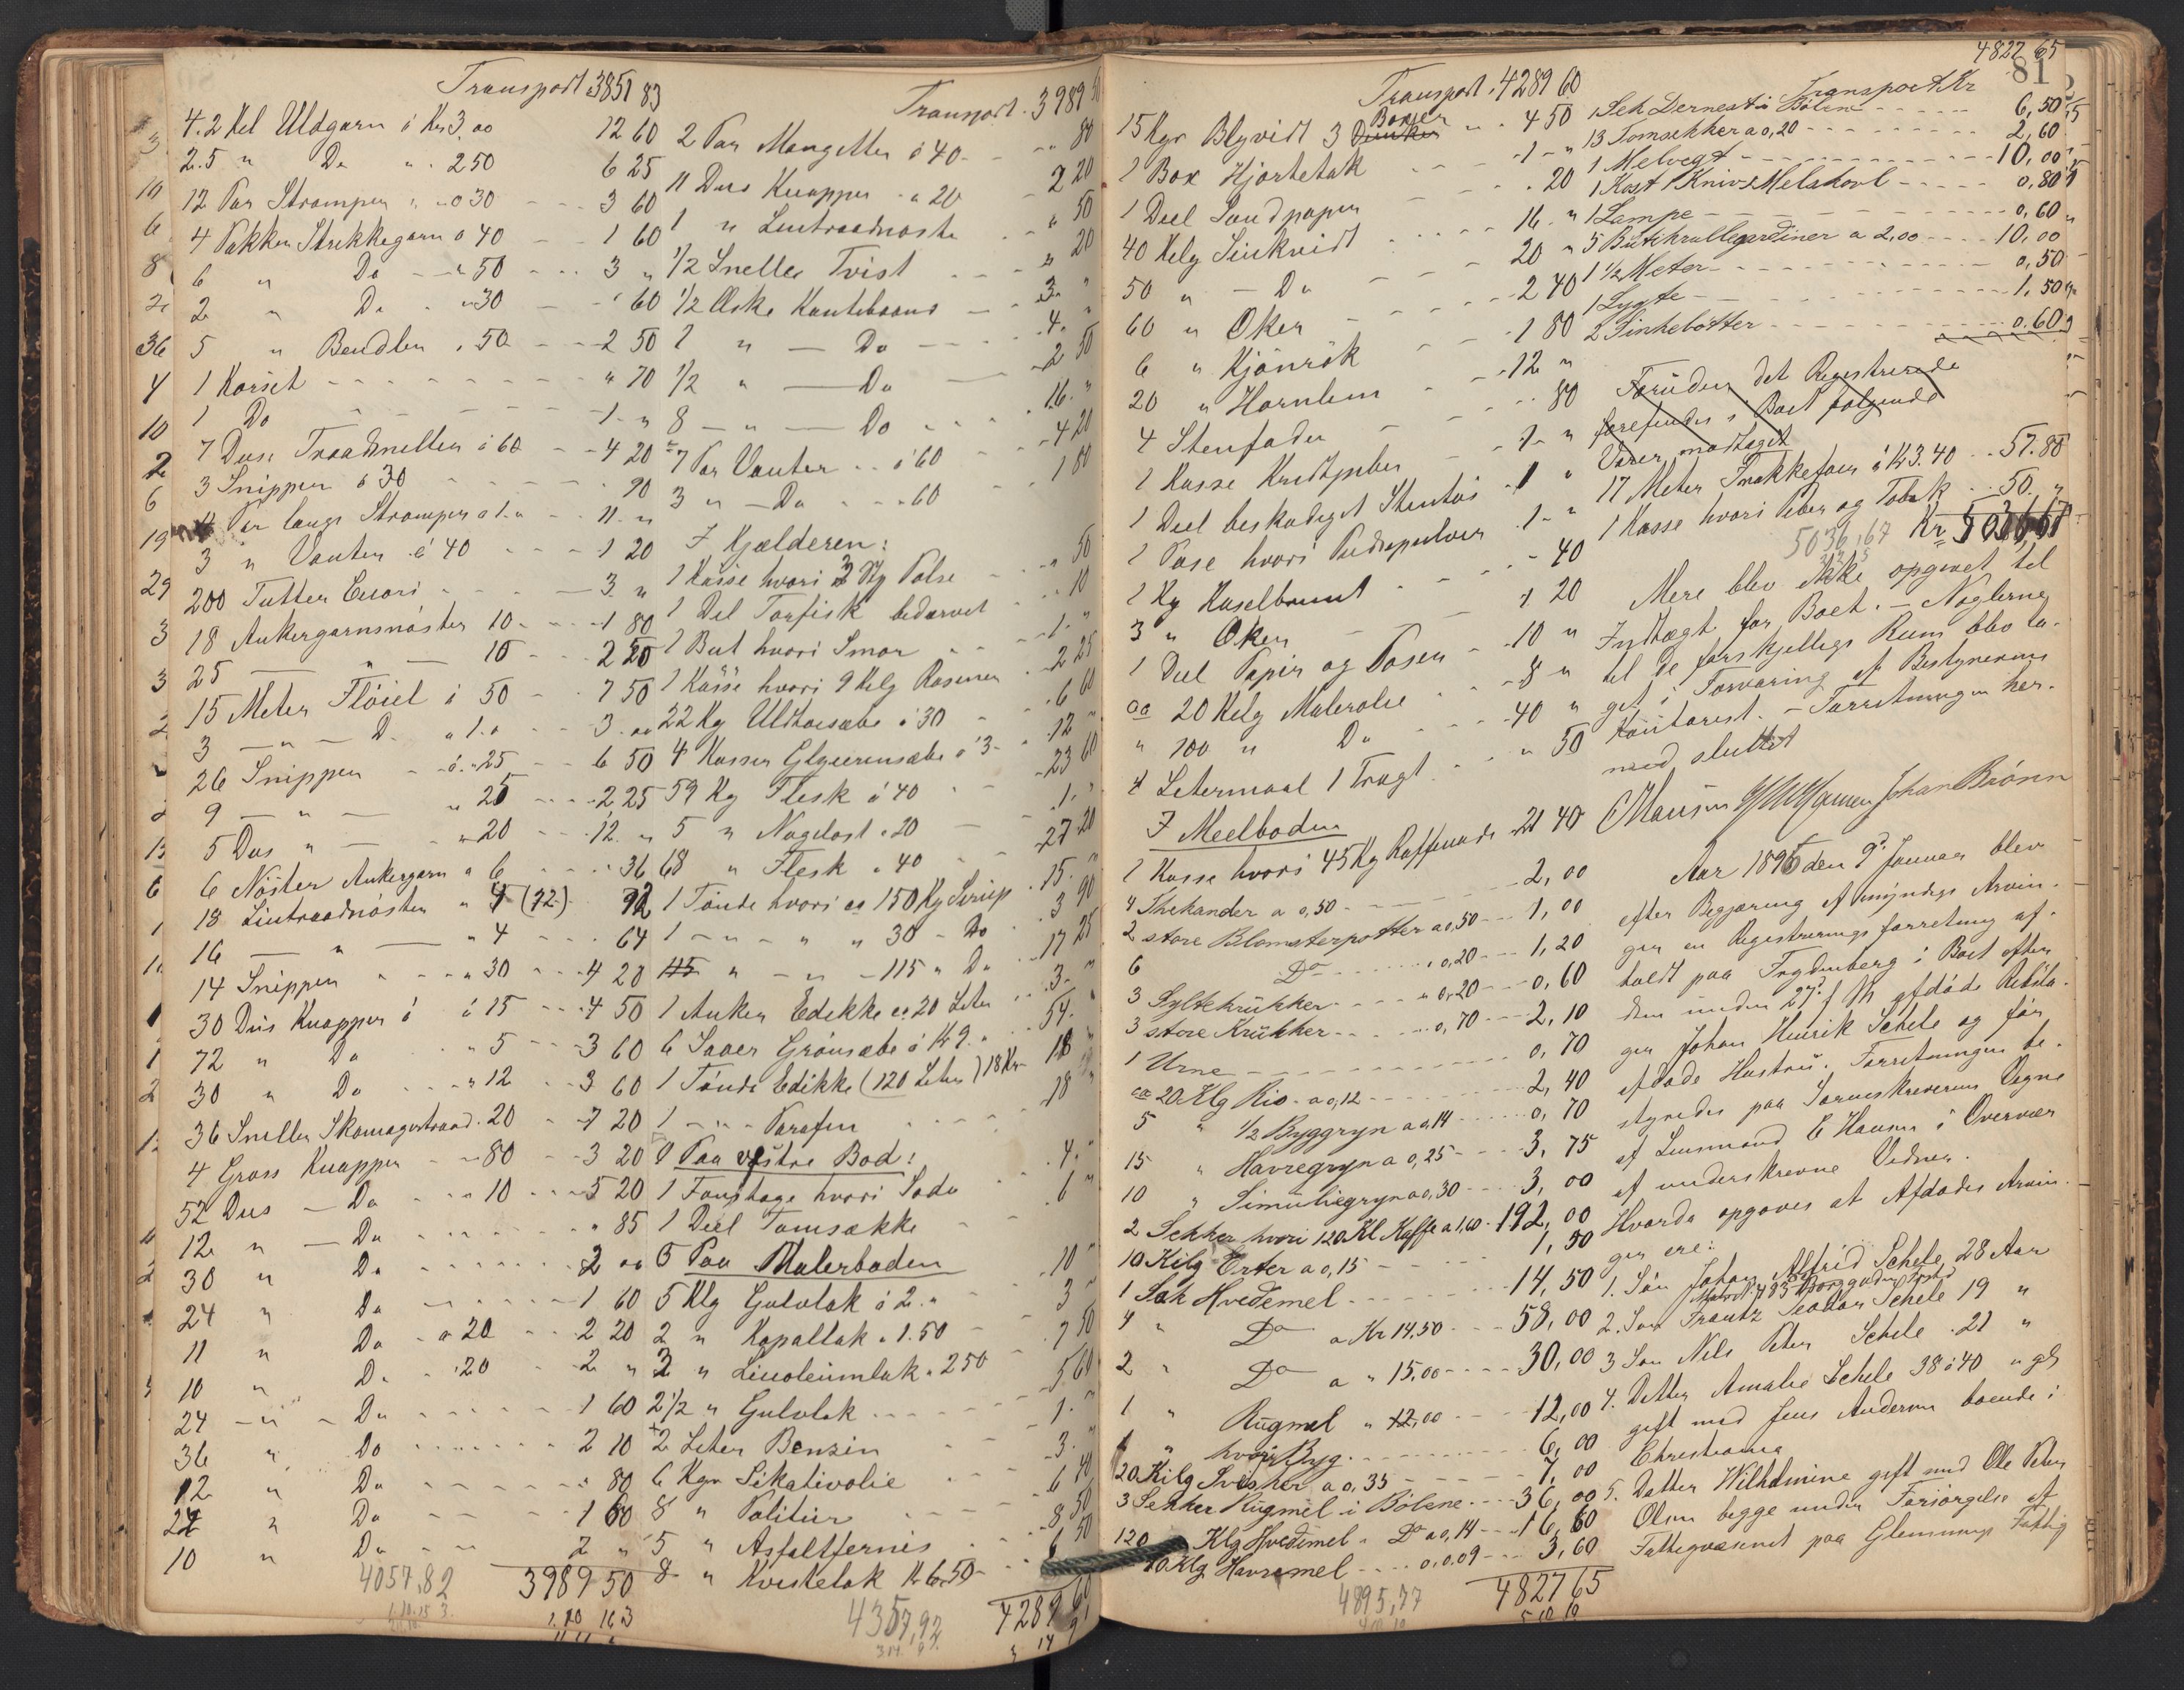 Transport 3851 83
4.2 Kel Uldgarn á Kr 3,00 12 60
2.5 " Do " . 250 6 25
12 Par Strømper " . 030 3 60
4 Pakker Strikkegarn á 40 1 60
6 " Do " 50 3 "
2 " Do " 30 " 60
5 " Bendler . 50 2 50
1 Korset " 70
1 Do 1 "
7 Dus. Traadsneller á 60 4 20
3 Snipper á 30 90
11 Par lange Strømper á 1." 11 "
3 " Vanter á 40 1 20
200 Tutter 3 "
18 Ankergarnsnøster 10 1 80
25 — " — 10 2 50
15 Meter Fløiel á 50 7 50
3 — " — D. " 1." 3.00
26 Snipper á " 25 6 50
9 — " — " 25 2 25
5 Dus " " 20 12 "
6 Nøster Ankergarn " 6 36
18 Lintraadnøster " 4 (72) 72
16 — " — " 4 64
14 Snipper " 30 4 20
30 Dus Knapper á á 15 4 50
72 " Do " 5 3 60
30 " Do " 12 3 60
36 Sneller Skomagertraad . 20 7 20
4 Gross Knapper " 80 3 20
52 Dus — Do " 10 5 20
12 " — Do " 85
30 " Do 2 00
24 " Do 1 60
11 " Do á 20 2 20
10 " Do . 20 2 "
24 — " — Do 1 60
36 " Do 2 10
12 " Do " 80
24 " Do 1 60
10 " Do 2 "
4057,82 3989 50
Transport . 3989
2 Par Mangetter á 40 " 80
11 Dus Knapper " 20 2 20
1 " Lintraadnøste " 50
1/2 Sneller Tvist " 20
1/2 Æske Kantebaand 3 "
1 " — Do 4. "
1/2 " — Do 2 50
8 — " — Do 16. "
7 Par Vanter á 60 4 20
3 " — Do " 60 1 80
I Kjælderen:
1 Kasse hvori 2 Kg Pølse " 50
1 Del Tørfisk bedærvet " 10
1 But hvori Smør 1. "
1 Kasse hvori 9 Kilg Rosiner 2 25
22 Kg á 30 6 60
4 Kasser Glycerinsæbe á 3 12 "
59 Kg Flesk á 40 23 60
5 " Nøgelost . 20 1. "
68 " Flesk . 40 27 20
1 Tønde hvori ca 150 Kg Sirup 15. "
1 — " — " " 30 — Do 3 90
" — " — 115 " Do 17 25
1 Anker Edekke ca 20 Leter 3 "
6 Saaer Grønsæbe á Kr 9. " 54. "
1 Tønde Edikke (120 Leter) 18 Kr 18 "
1 — " — Parafin 18 "
Paa vestre Bod:
1 Fonstage hvori Soda 4. "
1 Deel Tomsække 6 "
Paa Malerboden
5 Klg Gulvlak á 2. " 10 "
2 " Kopallak . 1.50 3 "
3 " Linoleumlak . 250 7 50
2 1/2 " Gulvlak 5 60
2 Leter Benzin 1. "
6 Kgr Sikativolie 3. "
8 " Politur 6 40
5 " Asfaltfernis 8 50
8 " Kvistelak Kr 6,50 6 50
4357,92 4289 60
Transport . 4289 60
15 Kgr Blyhvidt 3 Boxer 4 50
1 Box Hjortetak 1 "
1 Deel Sandpapir . 20
40 Kelg Sinkvidt 16 "
50 " — Do 20 "
60 " Oker 2 40
6 " Kjønrøk 1 80
20 " Hornlem 12 "
4 Stenfader 80
1 Kasse Kridtpiber 1 "
1 Deel beskadiget Stentøi 1 "
1 Pose hvori Pudsepulver 1 "
1 Kg Kaselbrunt 40
3 " Oker 1 20
1 Deel Papir og Poser 10 "
ca 20 Kelg Malerolie 8 "
" 100 " Do 40 "
4 Letermaal 1 Tragt " 50
I Meelboden
1 Kasse hvori 45 Kg Raffenade 21 40
4 Thekander a 0,50 2,00
2 store Blomsterpotter a 0,50 1,00
6 Do 0,20 1,20
3 Syltekrukker " 0,20 0,60
3 store Krukker 0,70 2,10
1 Urne 0,70
ca 20 Klg Ris a 0,12 2,40
5 " 1/2 Byggryn a 0,14 0,70
15 " Havregryn a 0,25 3,75
10 " Simuliegryn a 0,30 3,00
2 Sekker hvori 120 Kl Kaffe a 1,60 192,00
10 Kilg Erter a 0,15 1,50
1 Sæk Hvedemel 14,50
4 " Do a Kr 14,50 58,00
2 " Do a " 15,00 30,00
1 " Rugmel " 12,00 12,00
1 " hvori Byg 6,00
20 Kilg Svesker a 0,35 7,00
3 Sekker Rugmel i Bolene 36,00
120 Klg Hvedemel " Do a 0,14 16,80
40 Klg Havremel 0,0.09 3,60
4895,77 4827 65
4827 65
81
Transport Kr
1 Sek Dernest i Bolen 6,50
13 Tomsekker a 0,20 2,60
1 Melvegt 10,00
1 Kost 1 Kniv 2 Melskovl 0,80
1 Lampe 0,60
5 Butikrullegardiner a 2,00 10,00
1 1/2 Meter 0,50
1 Lygte 1,50
2 Sinkebøtter 0.60
Foruden det Registrerede
forefindes i Boet følgende
Varer modtaget
17 Meter Frakkefoer á Kr 3.40 57.80
1 Kasse hvori Piber og Tobak 50. "
5036,67 Kr 5036,67
Mere blev ikke opgivet til
Indtægt for Boet. — Nøglerne
til de forskjellige Rum blev ta-
get i Forvaring af Bestyrerens
Kontorist. — Forretningen her-
med sluttet
C Hansen Johan Brønn
Aar 1896 den 9d Januar blev
efter Begjæring af myndige Arvin-
ger en Registreringsforretning af-
holdt paa Frydenberg i Boet efter
den under 27 f M afdøde Rebsla-
ger Johan Henrik Schele og før
afdøde Hustru. Forretningen be-
styredes paa Sorenskriverens Vegne
af Lensmand C Hansen i Overvær
af underskrevne Vidner.
Hvorda opgaves at Afdødes Arvin-
ger ere:
1. Søn Johan Alfrid Schele, 28 Aar
2. Søn Frantz Teodor Schele 19 "
3 Søn Nils Peter Schele . 21 "
4. Datter Amalie Schele 38 á 40 " gl
gift med Jens Andersen boende i
Christiania
5. Datter Wilhelmine gift med Ole Peter
Olsen begge under Forsørgelse af
Fattigvæsenet paa Glemminge Fattig